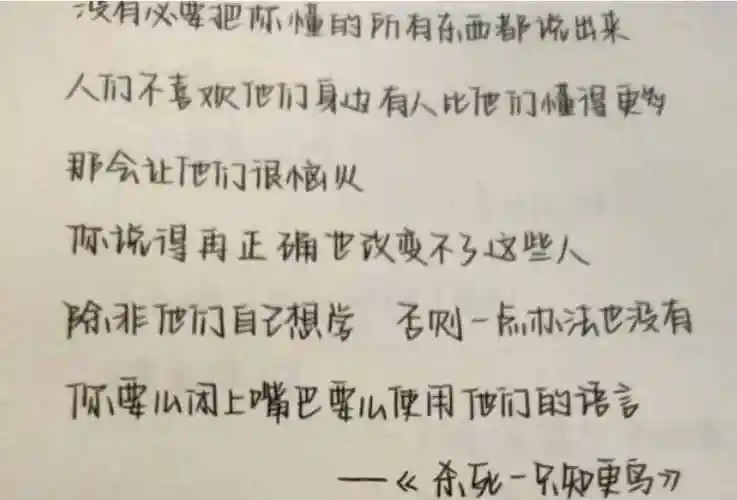 没有必要把你懂的所有东西都说出来
人们不喜欢他们身边有人比他们懂得更多
那会让他们很恼火
你说得再正确也改变不了这些人
除非他们自己想学 否则一点办法也没有
你要么闭上嘴巴要么使用他们的语言
——《杀死一只知更鸟》